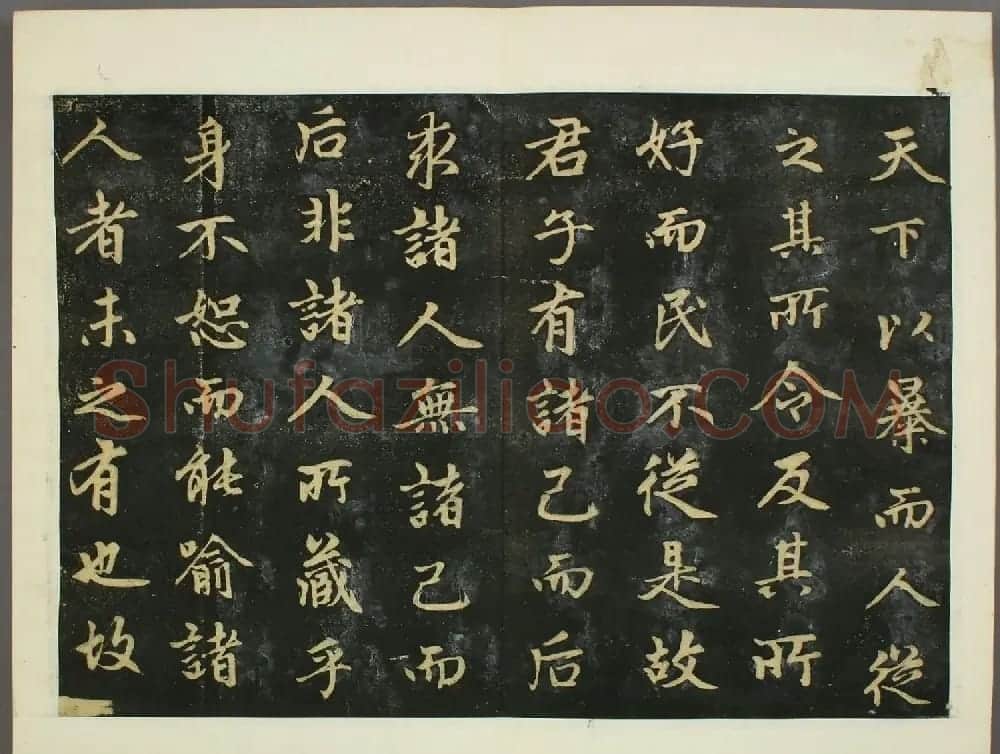 天下以暴而人從
之其所令反其所
好而民不從是故
君子有諸己而后
求諸人無諸己而
后非諸人所藏乎
身不恕而能喻諸
人者未之有也故
Shufaziliao.COM